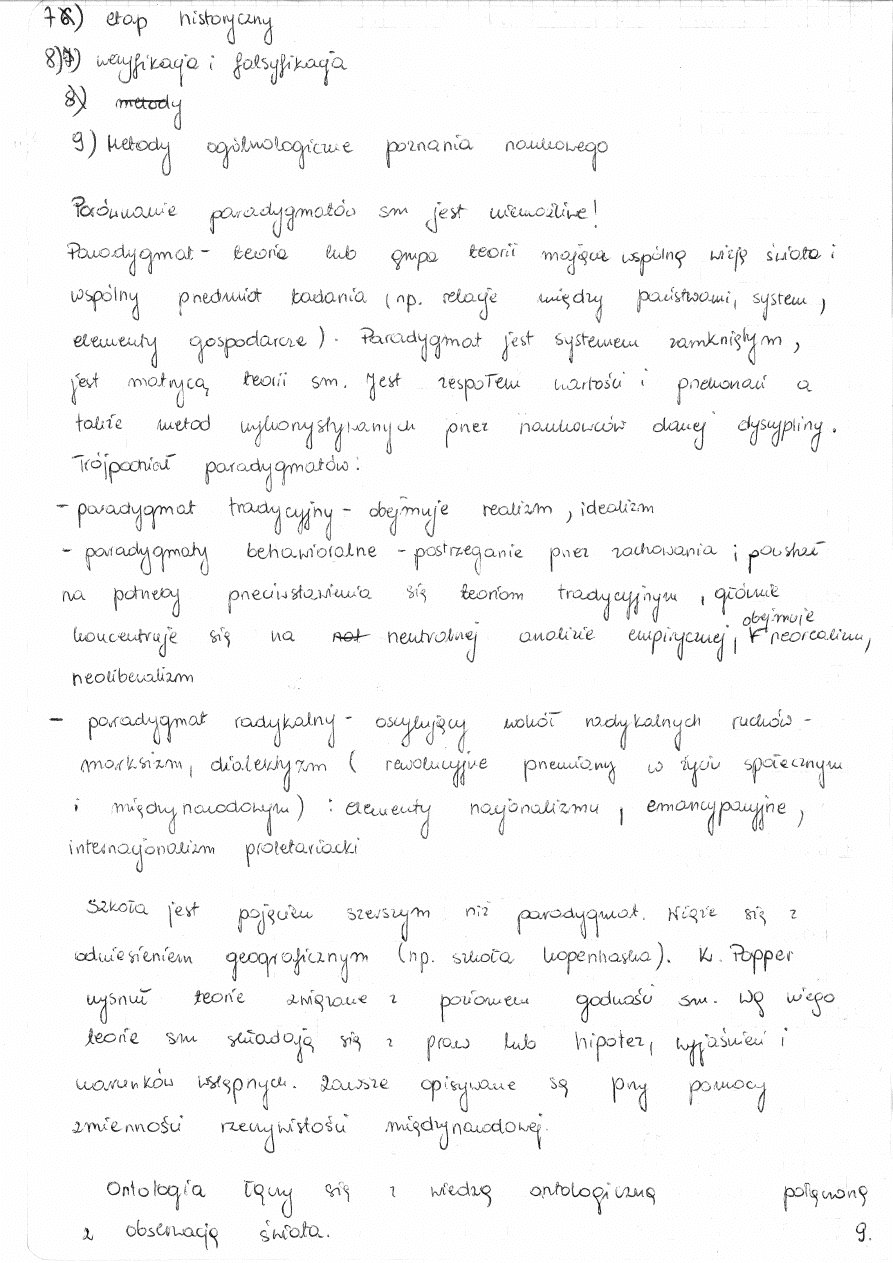 7) etap historyczny
8) weryfikacja i falsyfikacja
8) metody
9) Metody ogólnologiczne poznania naukowego
Porównanie paradygmatów sm jest niemożliwe!
Paradygmat - teoria lub grupa teorii mająca wspólną wizję świata i
wspólny przedmiot badania (np. relacje między państwami, system,
elementy gospodarcze). Paradygmat jest systemem zamkniętym,
jest matrycą teorii sm. Jest zespołem wartości i przekonań a
także metod wykorzystywanych przez naukowców danej dyscypliny.
Trójpodział paradygmatów:
- paradygmat tradycyjny - obejmuje realizm, idealizm
- paradygmaty behawioralne - postrzeganie przez zachowania i powstał
na potrzeby przeciwstawienia się teoriom tradycyjnym, głównie
koncentruje się na neutralnej analizie empirycznej, obejmuje neorealizm,
neoliberalizm
- paradygmat radykalny - oscylujący wokół radykalnych ruchów -
marksizm, dialektyzm (rewolucyjne przemiany w życiu społecznym
i międzynarodowym) : elementy nacjonalizmu, emancypacyjne,
internacjonalizm proletariacki
Szkoła jest pojęciem szerszym niż paradygmat. Wiąże się z
odniesieniem geograficznym (np. szkoła kopenhaska). K. Popper
wysnuł teorie związane z poziomem godności sm. Wg niego
teorie sm składają się z praw lub hipotez, wyjaśnień i
warunków wstępnych. Zawsze opisywane są przy pomocy
zmienności rzeczywistości międzynarodowej.
Ontologia łączy się z wiedzą ontologiczną połączoną
z obserwacją świata.
9.